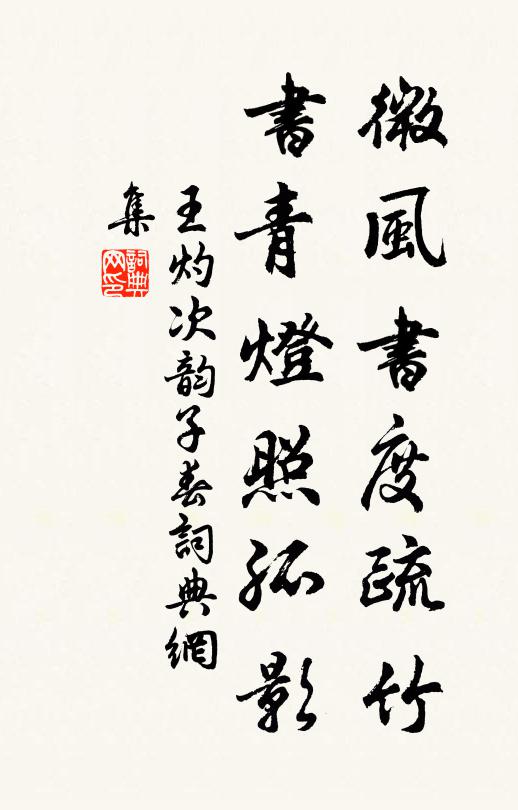 微風書度疏竹
書青燈照孤影
王灼次韵子春詞典網
集
詞典
网印